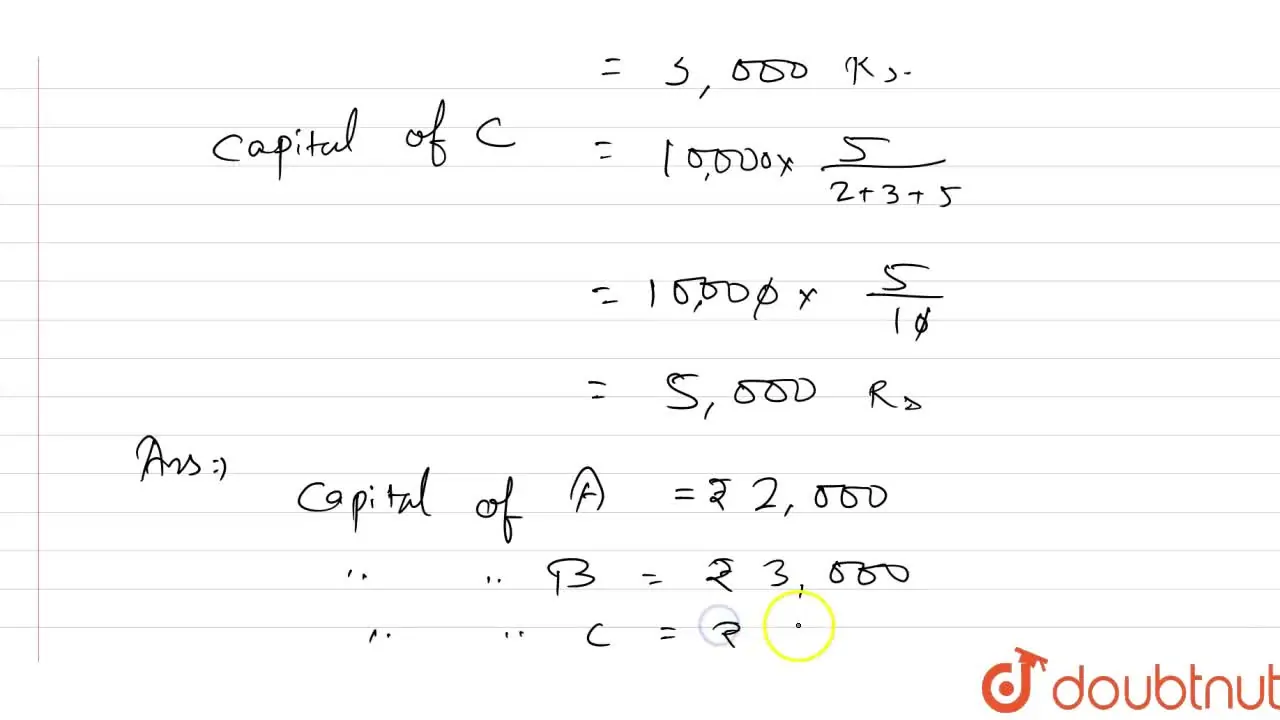 = 3,000 Rs.
Capital of C = 10,000 x 5 / 2+3+5
= 10,000 x 5 / 10
= 5,000 Rs
Ans :)
Capital of A = ₹ 2,000
,, ,, B = ₹ 3,000
,, ,, C = ₹
doubtnut